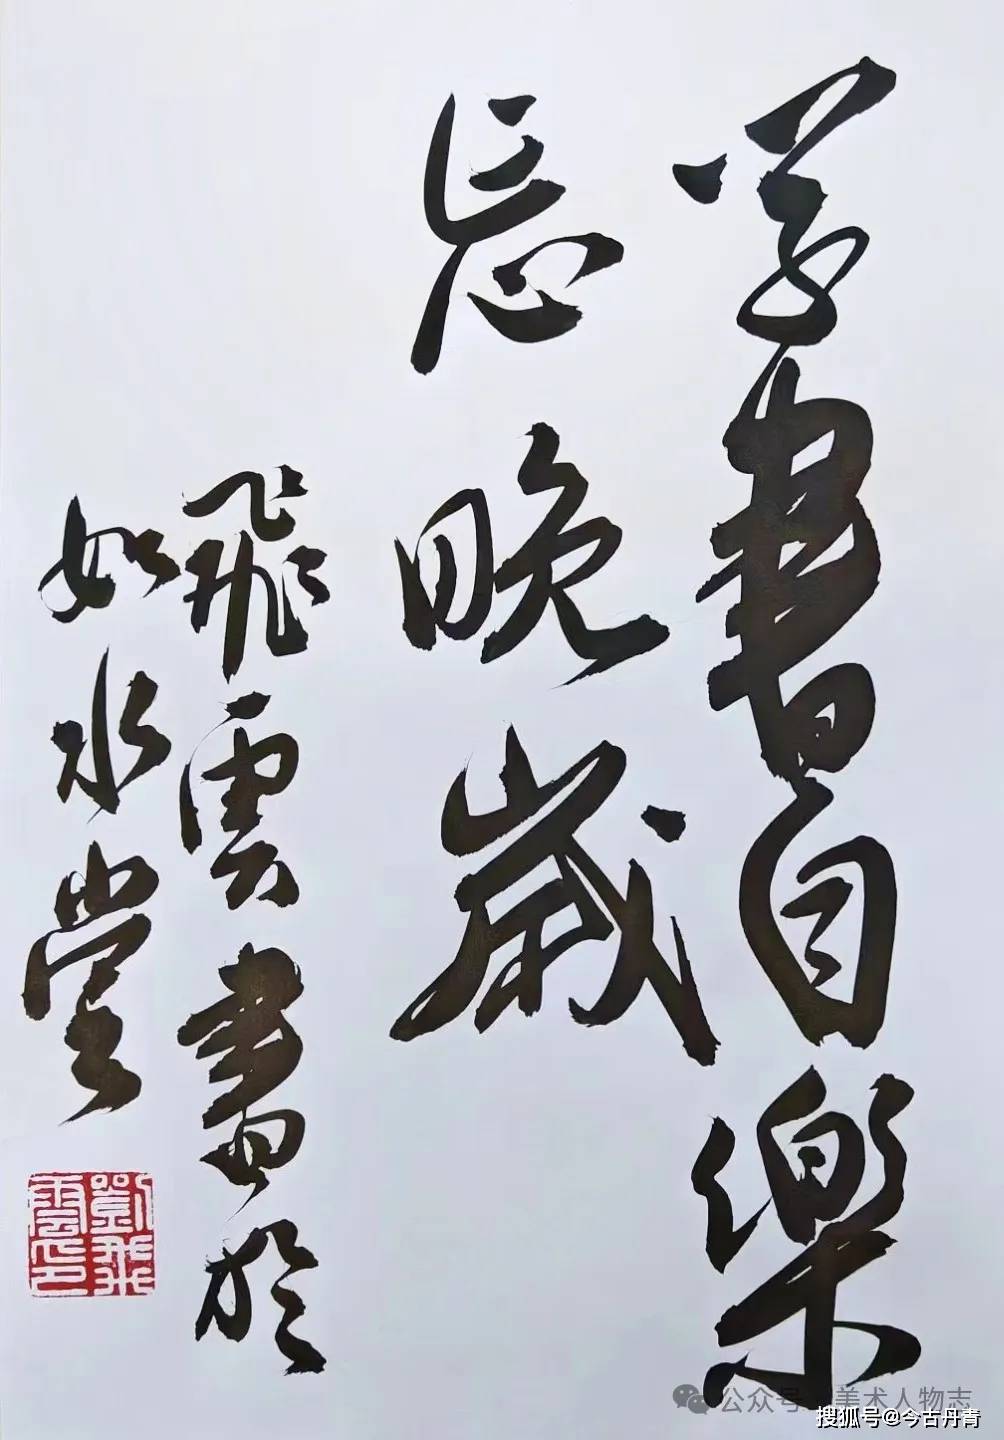 学書自樂
忘晚歲
飛雲書於
如水堂
劉飛
雲印
公众号 美术人物志
搜狐号@今古丹青